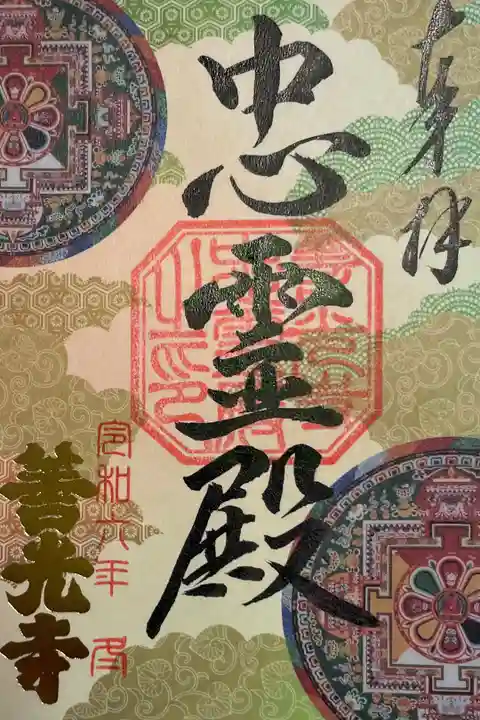 奉拝
忠霊殿
令和六年
善光寺